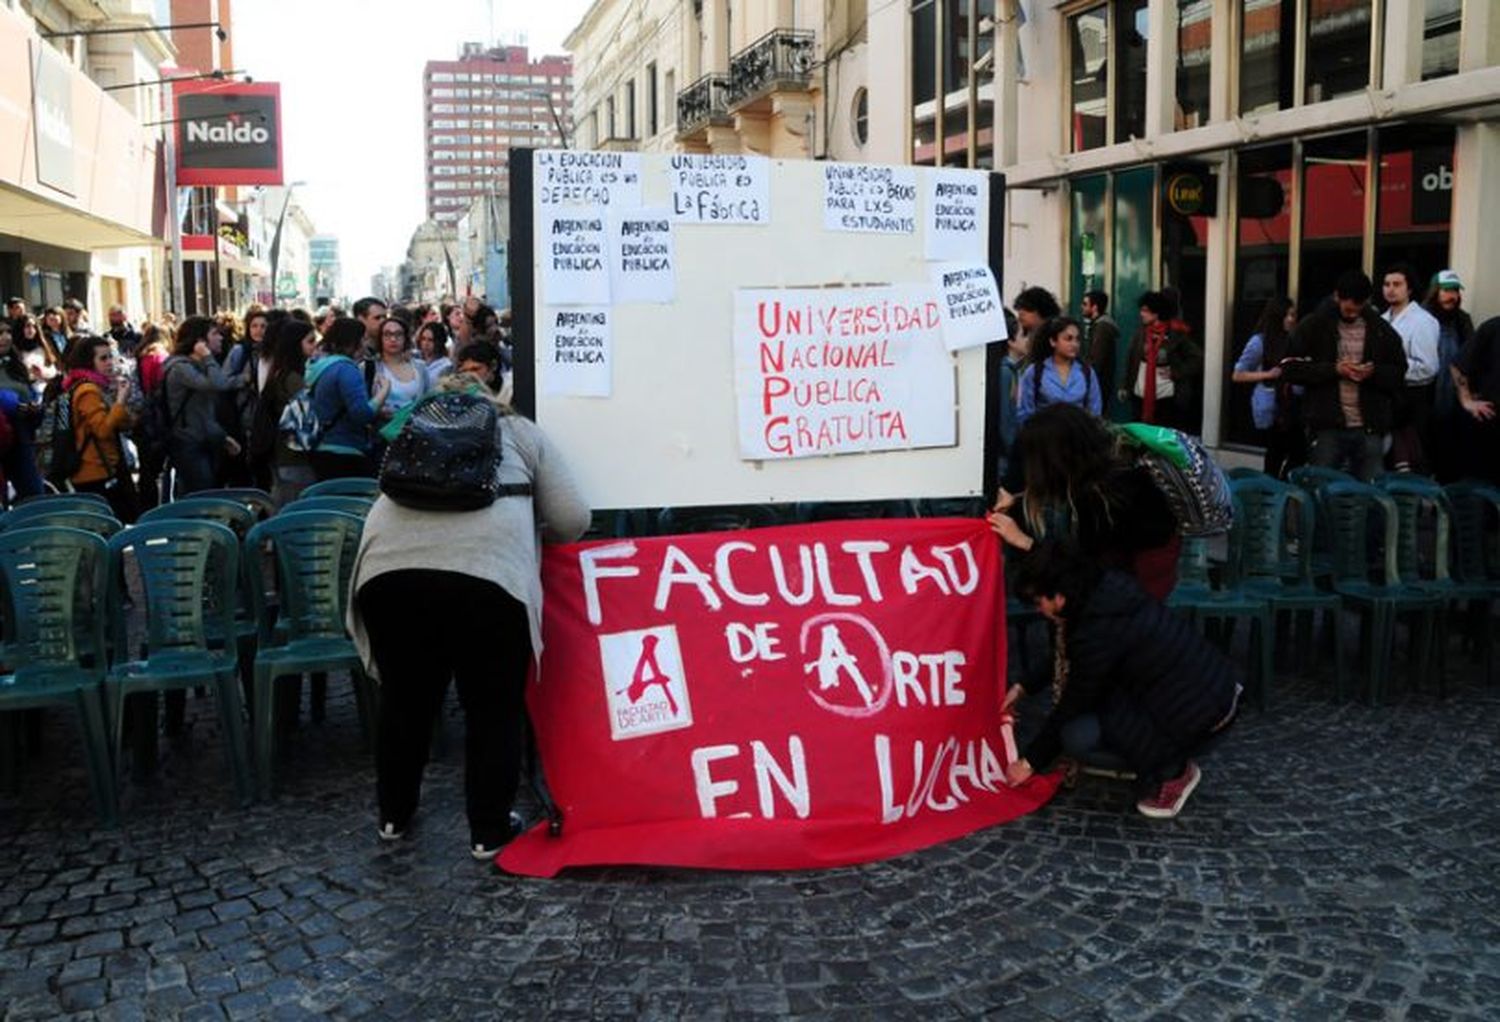 Naldo
LA EDUCACION
PÚBLICA ES UN
DERECHO
UNIVERSIDAD
PÚBLICA ES
La Fábrica
UNIVERSIDAD
PÚBLICA ES BECAS
PARA LXS
ESTUDIANTES
ARGENTINA
ES
EDUCACION
PÚBLICA
ARGENTINA
ES
EDUCACION
PÚBLICA
ARGENTINA
ES
EDUCACION
PÚBLICA
ARGENTINA
ES
EDUCACION
PÚBLICA
ARGENTINA
ES
EDUCACION
PÚBLICA
UNIVERSIDAD
NACIONAL
PÚBLICA
GRATUITA
LINK
ob
FACULTAD
DE ARTE
EN LUCHA
A
FACULTAD
DE ARTE